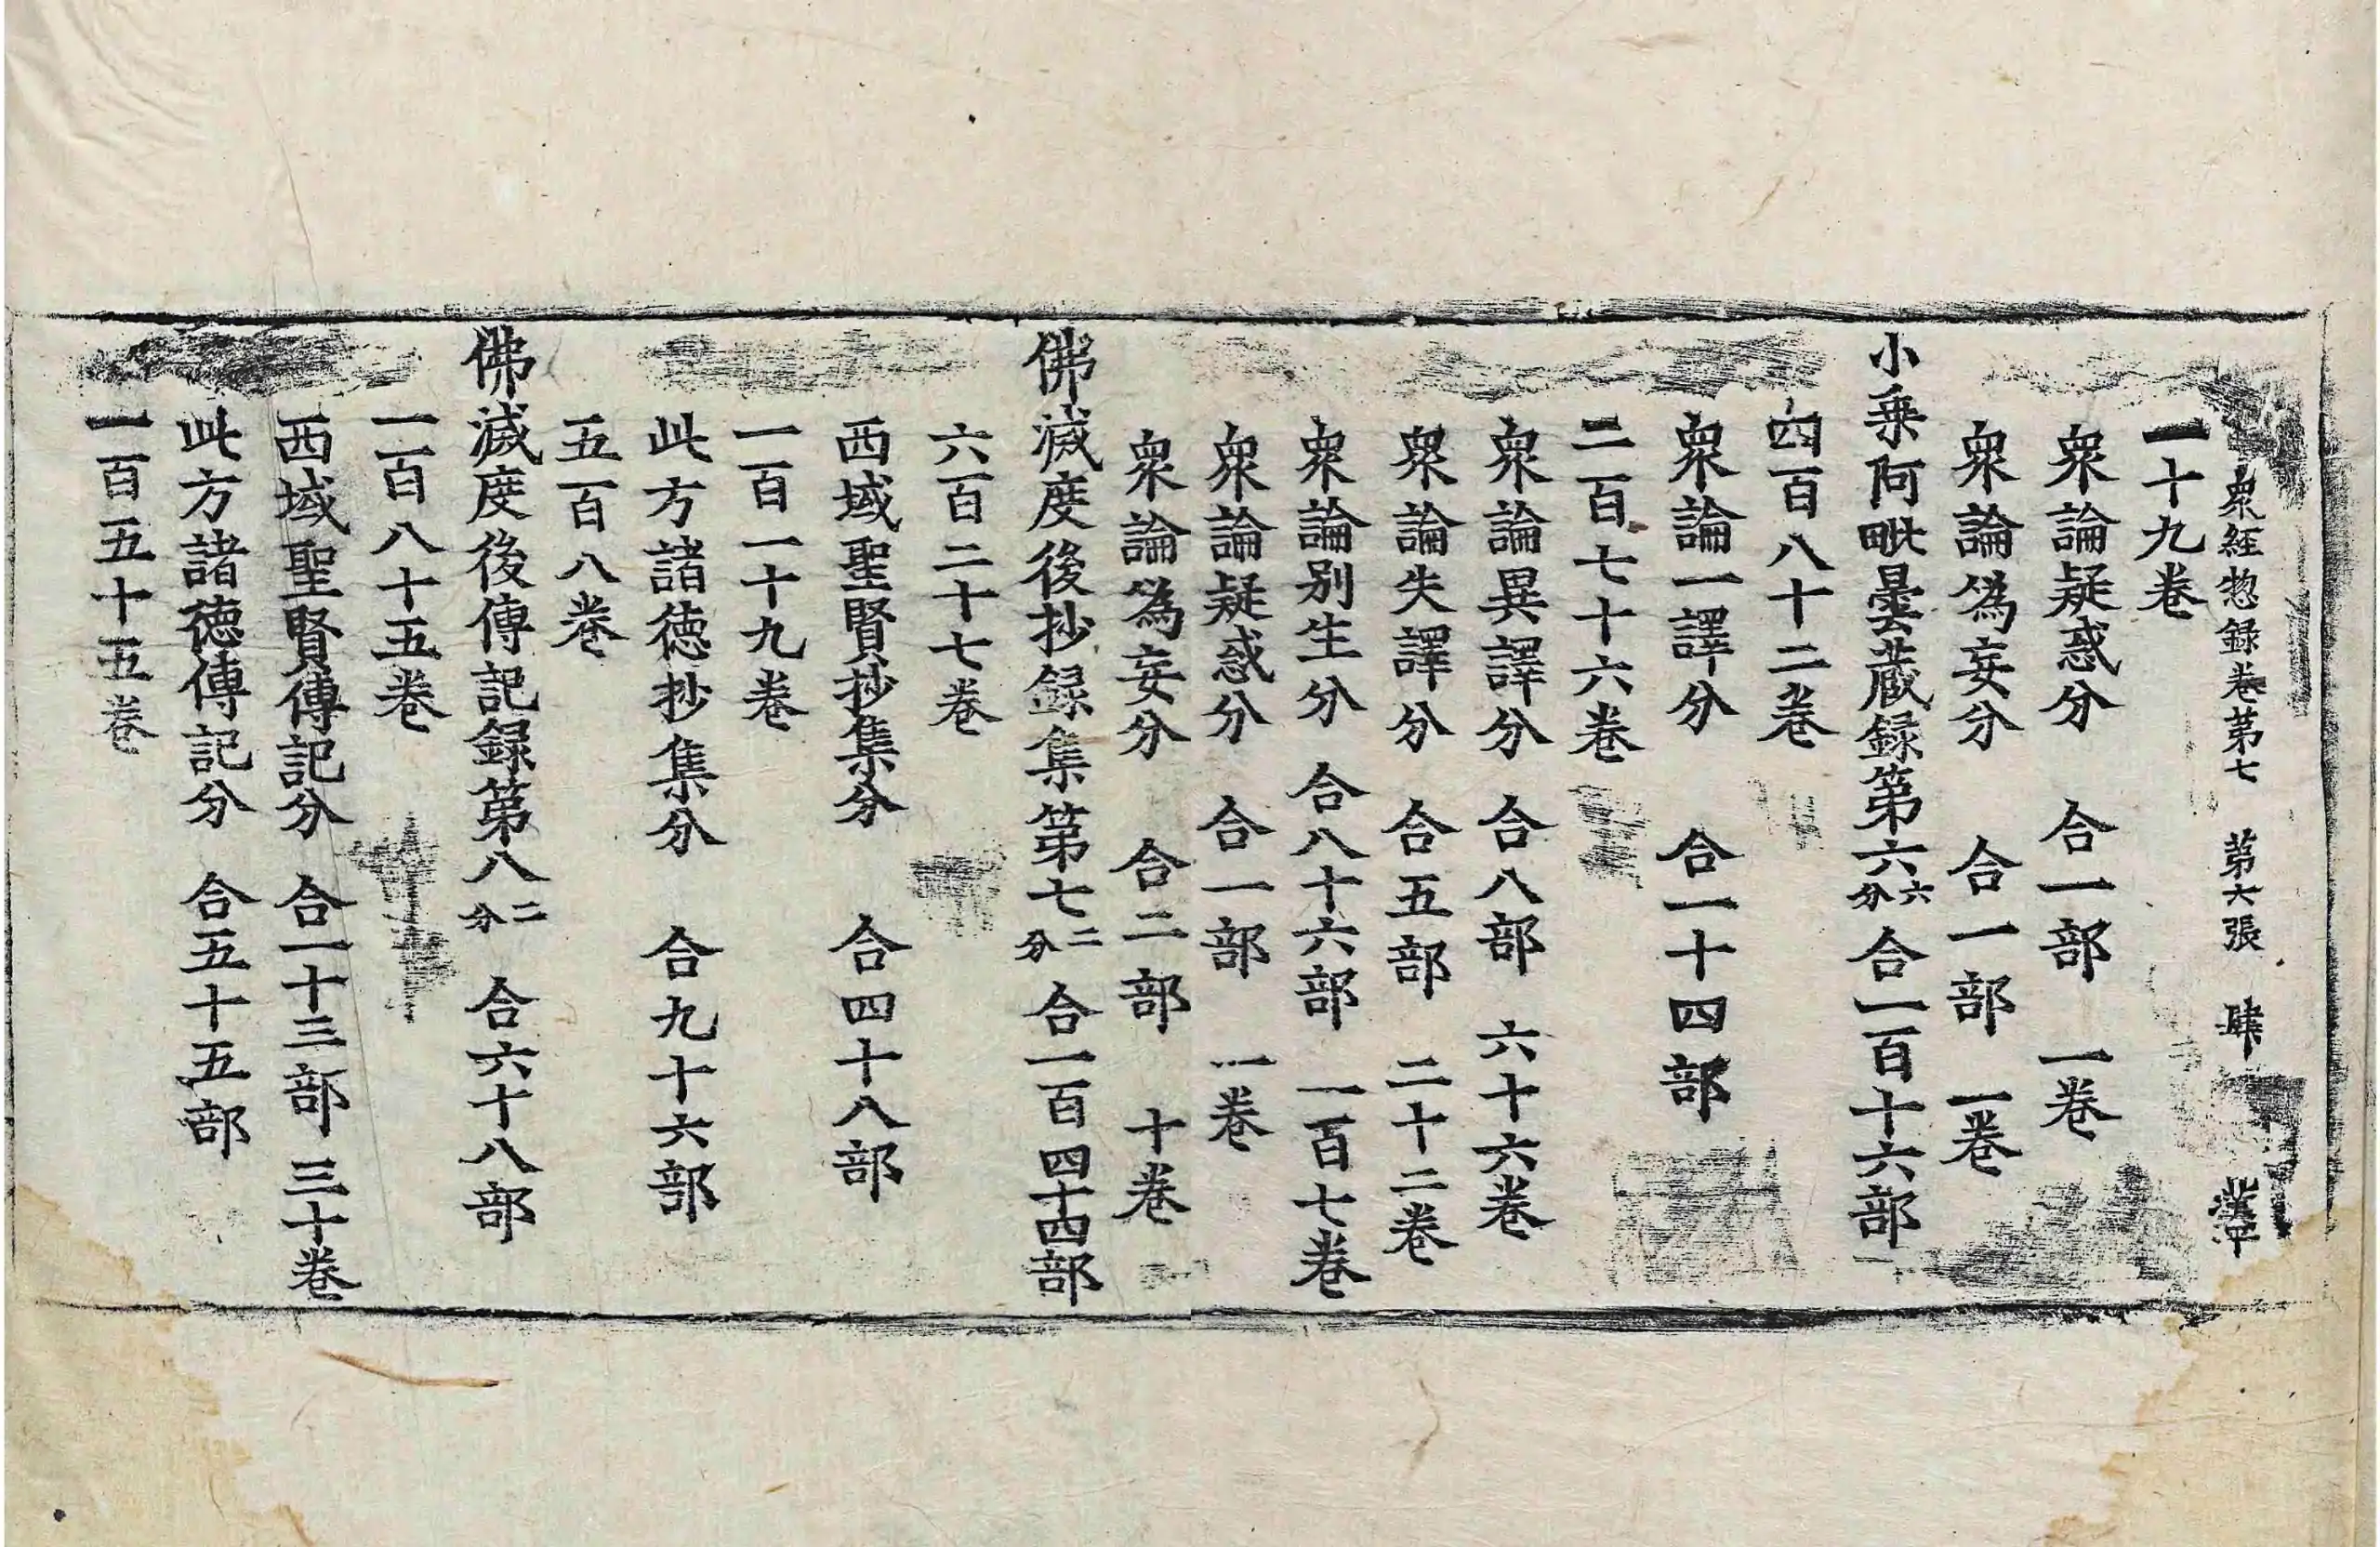 衆経惣録卷苐七　苐六張　肆
一十九卷
衆論疑惑分　合一部　一卷
衆論偽妄分　合一部　一卷
小乗阿毗曇蔵録第六六分合一百十六部
四百八十二卷
衆論一譯分　合一十四部
二百七十六卷
衆論異譯分　合八部　六十六卷
衆論失譯分　合五部　二十二卷
衆論別生分　合八十六部　一百七卷
衆論疑惑分　合一部　一卷
衆論為妄分　合二部　十卷
佛滅度後抄録集第七二分合一百四十四部
六百二十七卷
西域聖賢抄集分　合四十八部
一百一十九卷
此方諸徳抄集分　合九十六部
五百八卷
佛滅度後傳記録第八二分　合六十八部
一百八十五卷
西域聖賢傳記分　合一十三部　三十卷
此方諸徳傳記分　合五十五部
一百五十五卷